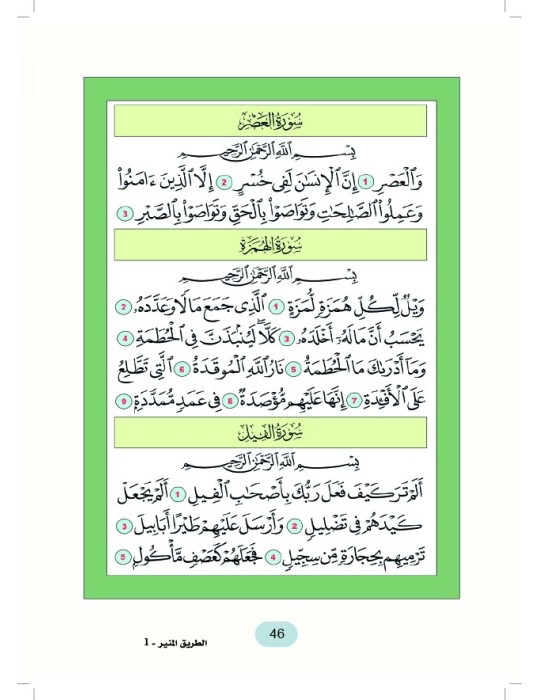 سُورَةُ العَصْرِ
بِسْمِ اللَّهِ الرَّحْمَٰنِ الرَّحِيمِ
وَالْعَصْرِ 1 إِنَّ الْإِنسَانَ لَفِي خُسْرٍ 2 إِلَّا الَّذِينَ ءَامَنُوا
وَعَمِلُوا الصَّالِحَاتِ وَتَوَاصَوْا بِالْحَقِّ وَتَوَاصَوْا بِالصَّبْرِ 3
سُورَةُ الهُمَزَةِ
بِسْمِ اللَّهِ الرَّحْمَٰنِ الرَّحِيمِ
وَيْلٌ لِّكُلِّ هُمَزَةٍ لُّمَزَةٍ 1 الَّذِي جَمَعَ مَالًا وَعَدَّدَهُ 2
يَحْسَبُ أَنَّ مَالَهُ أَخْلَدَهُ 3 كَلَّا لَيُنبَذَنَّ فِي الْحُطَمَةِ 4
وَمَا أَدْرَاكَ مَا الْحُطَمَةُ 5 نَارُ اللَّهِ الْمُوقَدَةُ 6 الَّتِي تَطَّلِعُ
عَلَى الْأَفْئِدَةِ 7 إِنَّهَا عَلَيْهِم مُّؤْصَدَةٌ 8 فِي عَمَدٍ مُّمَدَّدَةٍ 9
سُورَةُ الفِيلِ
بِسْمِ اللَّهِ الرَّحْمَٰنِ الرَّحِيمِ
أَلَمْ تَرَ كَيْفَ فَعَلَ رَبُّكَ بِأَصْحَابِ الْفِيلِ 1 أَلَمْ يَجْعَلْ
كَيْدَهُمْ فِي تَضْلِيلٍ 2 وَأَرْسَلَ عَلَيْهِمْ طَيْرًا أَبَابِيلَ 3
تَرْمِيهِم بِحِجَارَةٍ مِّن سِجِّيلٍ 4 فَجَعَلَهُمْ كَعَصْفٍ مَّأْكُولٍ 5
46
الطريق المنير - 1